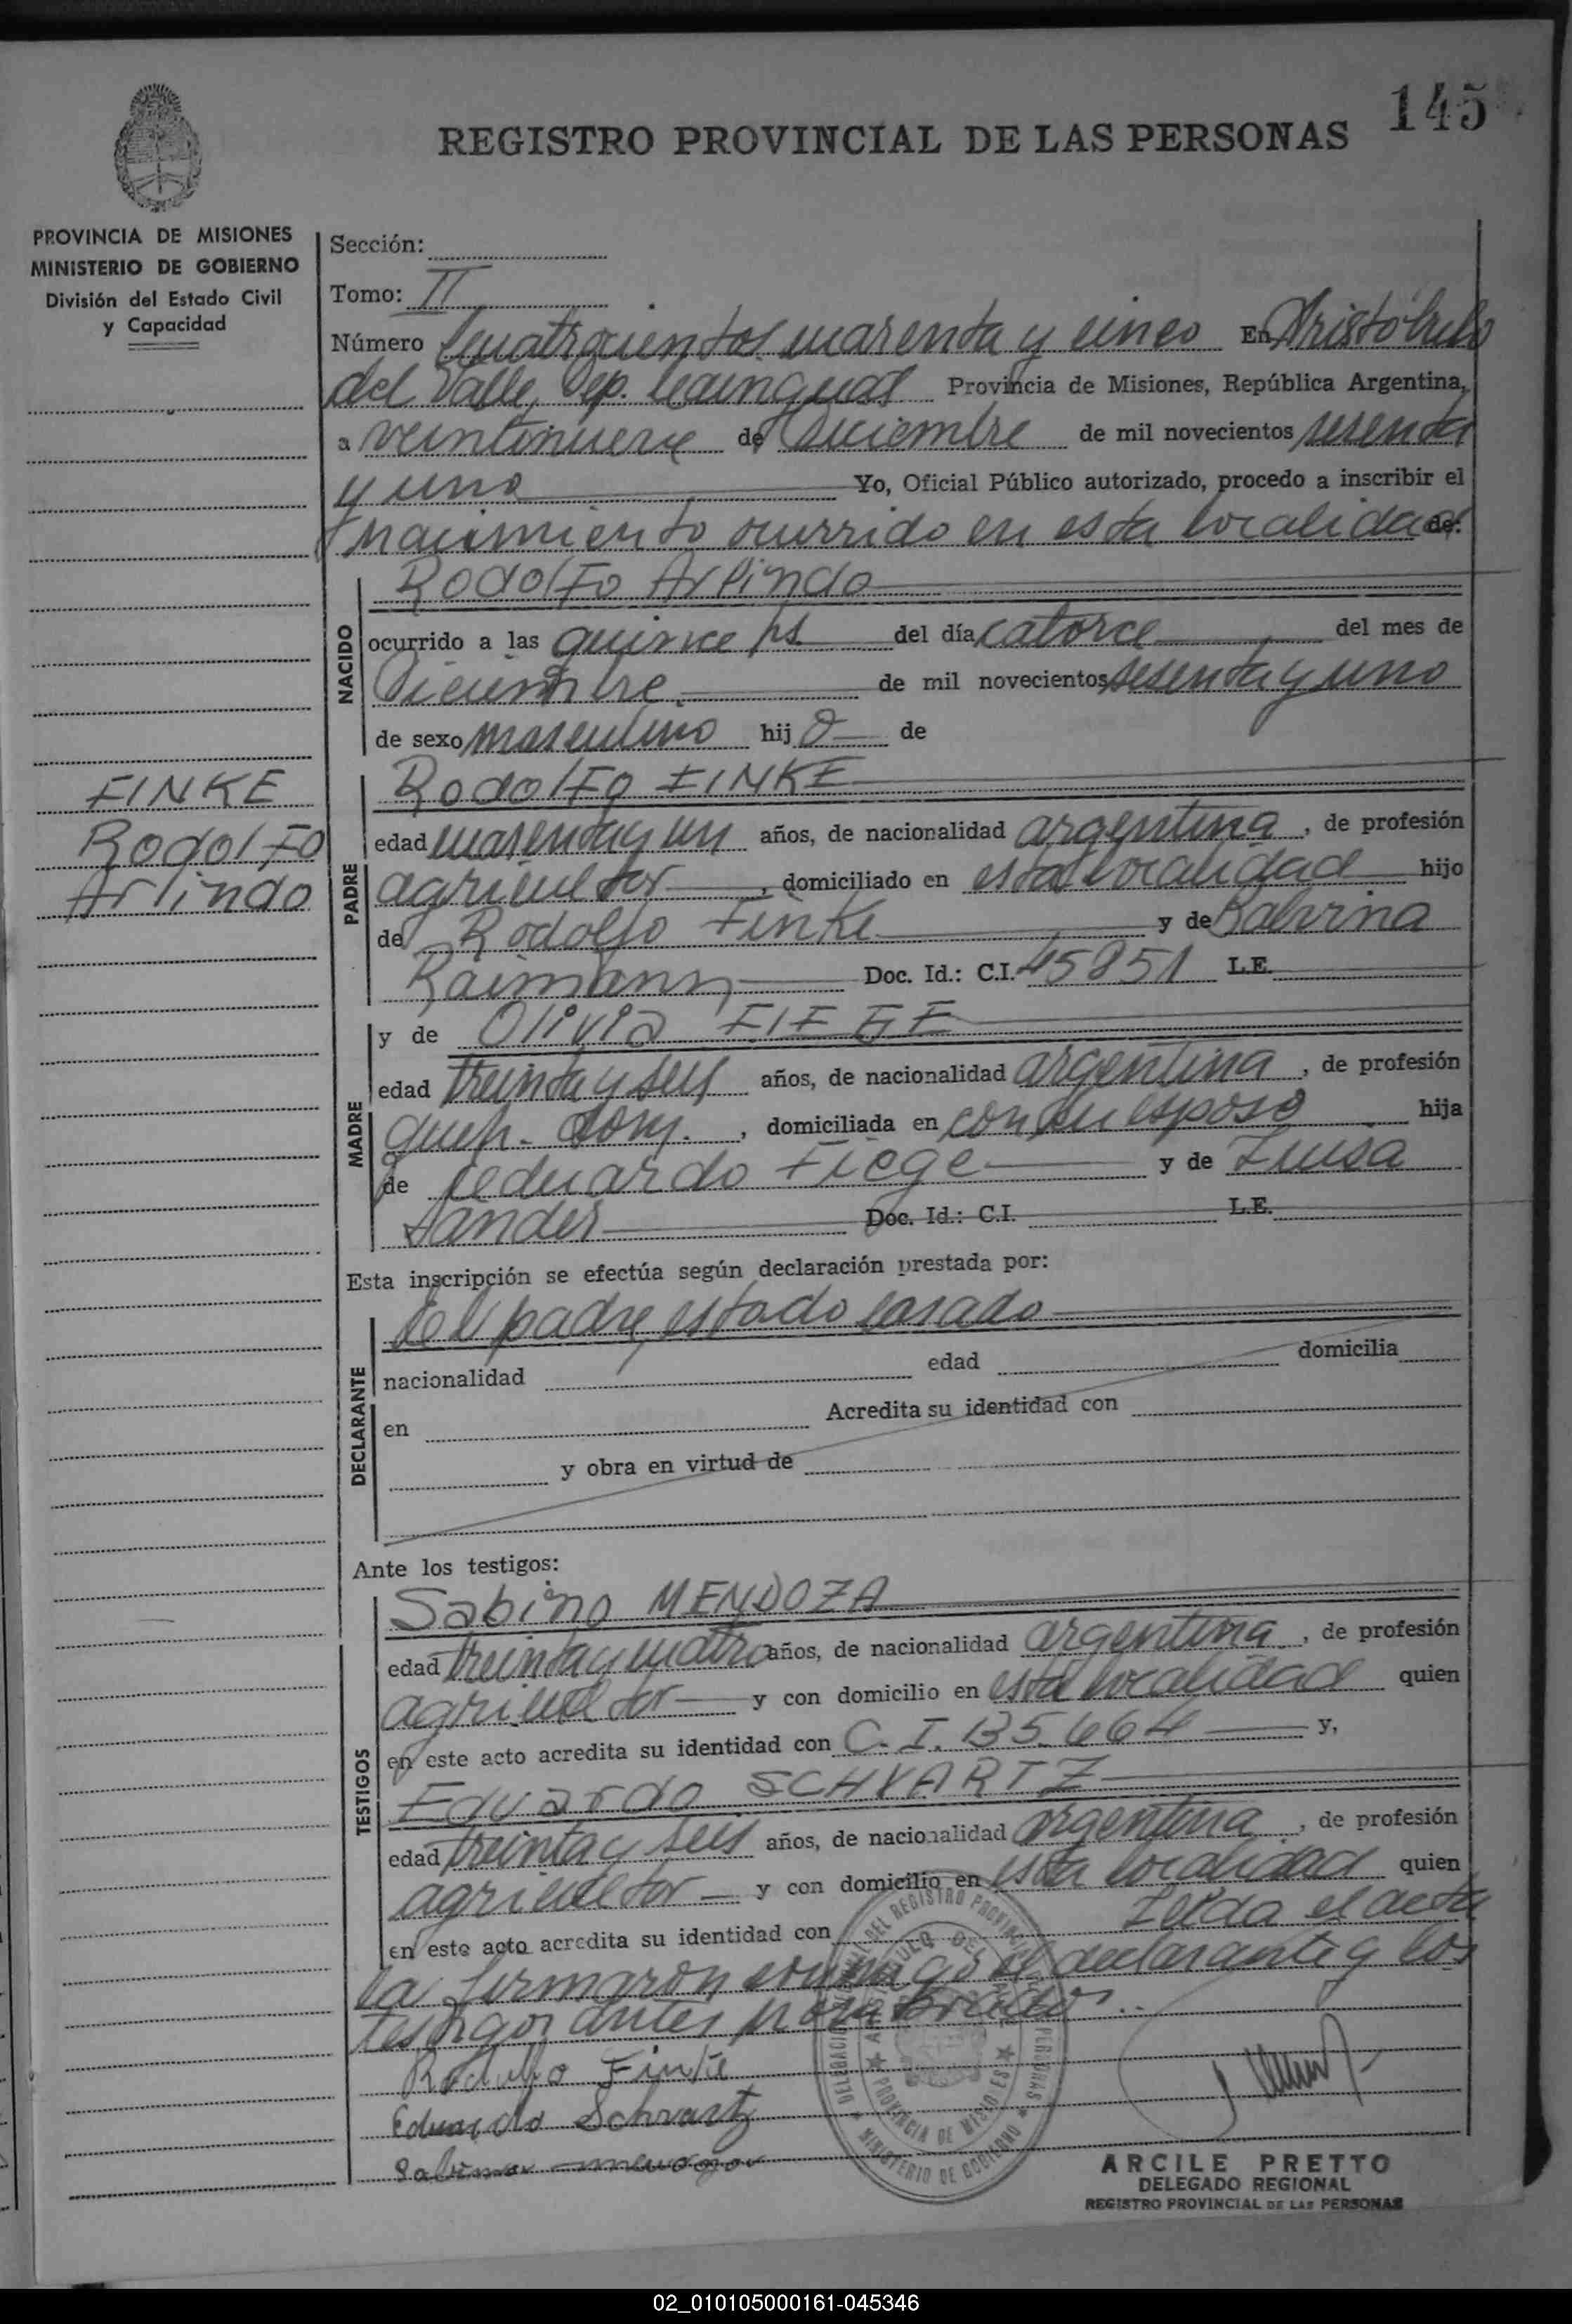 145
REGISTRO PROVINCIAL DE LAS PERSONAS
PROVINCIA DE MISIONES
MINISTERIO DE GOBIERNO
División del Estado Civil
y Capacidad
Sección:
Tomo: II
Número Cuatrocientos cuarenta y cinco En Aristóbulo
del Valle, Dep. Cainguás Provincia de Misiones, República Argentina,
a veintinueve de Diciembre de mil novecientos sesenta
y uno Yo, Oficial Público autorizado, procedo a inscribir el
nacimiento ocurrido en esta localidad de:
NACIDO
Rodolfo Arlindo
ocurrido a las quince hs del día catorce del mes de
Diciembre de mil novecientos sesenta y uno
de sexo masculino hijo de
FINKE
Rodolfo
Arlindo
PADRE
Rodolfo FINKE
edad cuarenta y un años, de nacionalidad argentina, de profesión
agricultor, domiciliado en esta localidad hijo
de Rodolfo Finke y de Balvina
Raimann Doc. Id.: C.I. 45851 L.E.
MADRE
y de Olivia FIEGE
edad treinta y seis años, de nacionalidad argentina, de profesión
queh. dom., domiciliada en con su esposo hija
de Eduardo Fiege y de Luisa
Sander Doc. Id.: C.I. L.E.
Esta inscripción se efectúa según declaración prestada por:
DECLARANTE
El padre, estado casado
nacionalidad edad domicilia
en Acredita su identidad con
y obra en virtud de
Ante los testigos:
TESTIGOS
Sabino MENDOZA
edad treinta y cuatro años, de nacionalidad argentina, de profesión
agricultor y con domicilio en esta localidad quien
en este acto acredita su identidad con C.I. 135.664 y,
Eduardo SCHVARTZ
edad treinta y seis años, de nacionalidad argentina, de profesión
agricultor y con domicilio en esta localidad quien
en este acto acredita su identidad con Leída el acta
la firmaron conmigo el declarante y los
testigos antes nombrados..
Rodolfo Finke
Eduardo Schvartz
Sabino
DEL REGISTRO PROVINCIAL DE LAS PERSONAS
ARISTOBULO DEL VALLE
PROVINCIA DE MISIONES
MINISTERIO DE GOBIERNO
ARCILE PRETTO
DELEGADO REGIONAL
REGISTRO PROVINCIAL DE LAS PERSONAS
02_010105000161-045346